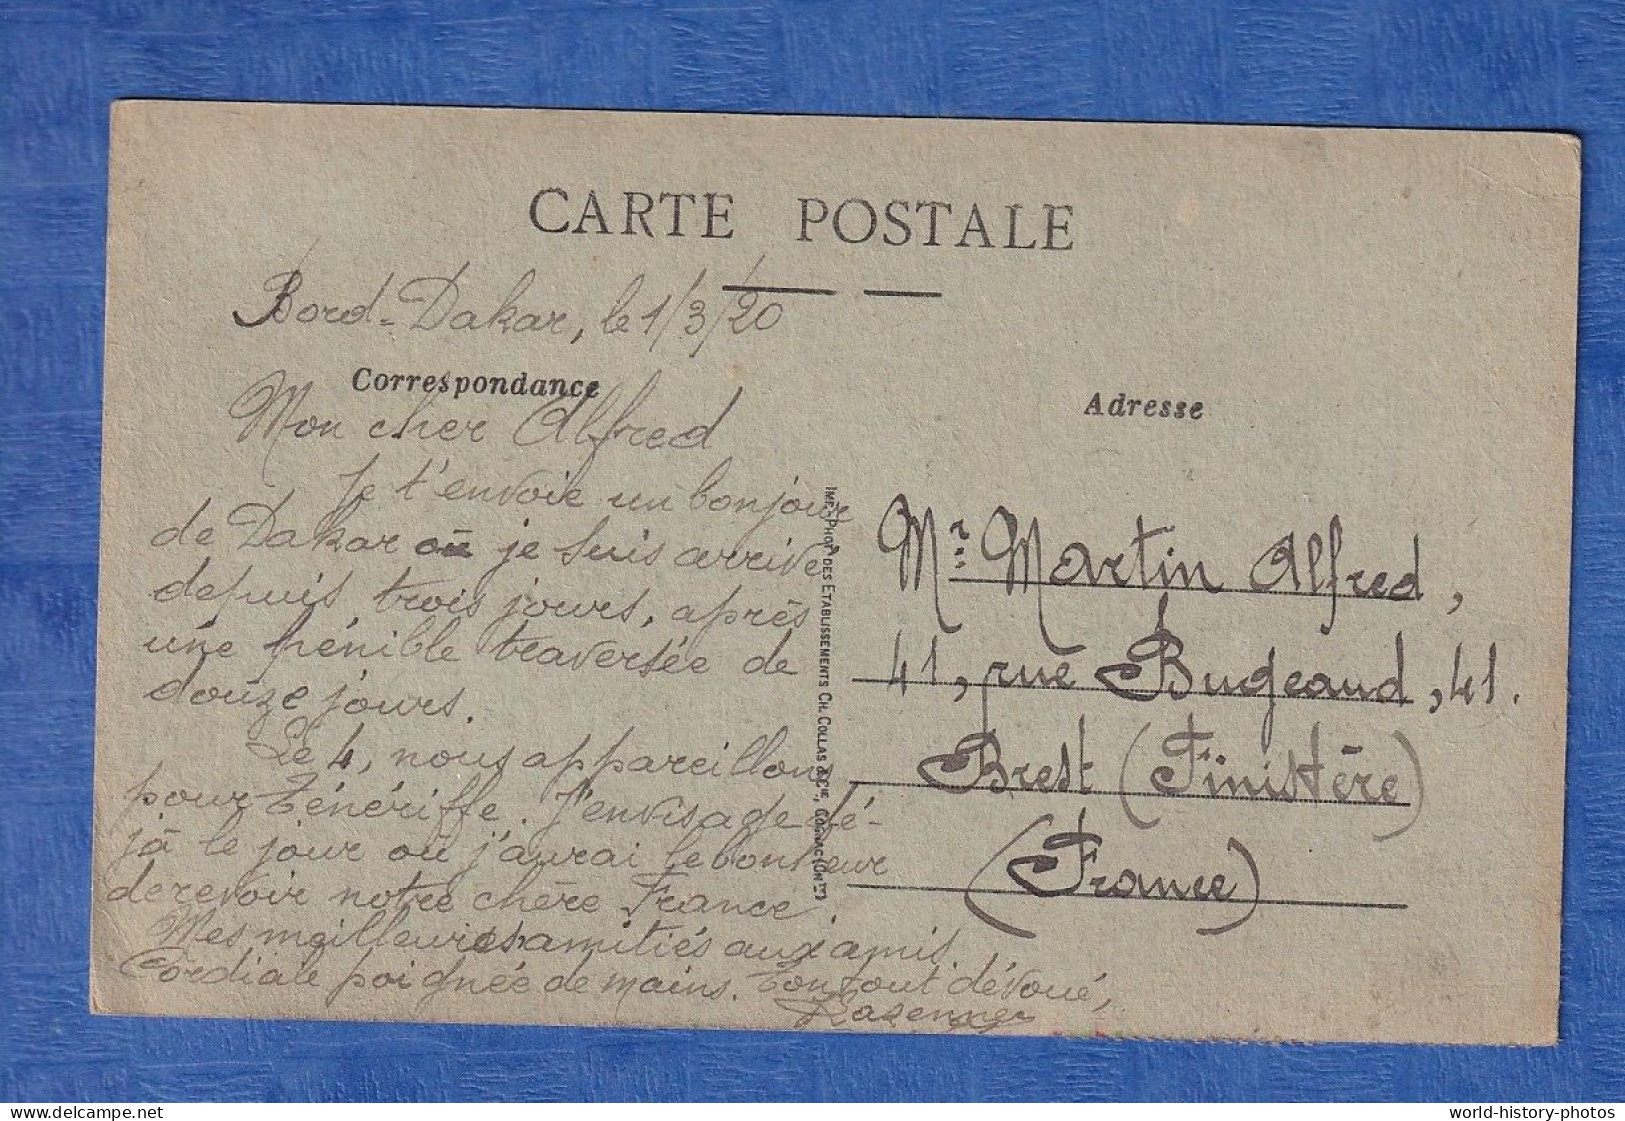 CARTE POSTALE
Bord-Dakar, le 1/3/20
Correspondance
Mon cher Alfred
Je t'envoie un bonjour
de Dakar où je suis arrivé
depuis trois jours, après
une pénible traversée de
douze jours.
Le 4, nous appareillons
pour Ténériffe. J'envisage dé-
jà le jour où j'aurai le bonheur
de revoir notre chère France.
Mes meilleures amitiés aux amis.
Cordiale poignée de mains. Ton tout dévoué,
IMP. PHOT. DES ETABLISSEMENTS CH. COLLAS & CIE, COGNAC
Adresse
Mr. Martin Alfred,
41, rue Bugeaud, 41.
Brest (Finistère)
(France)
delcampe.net
world-history-photos